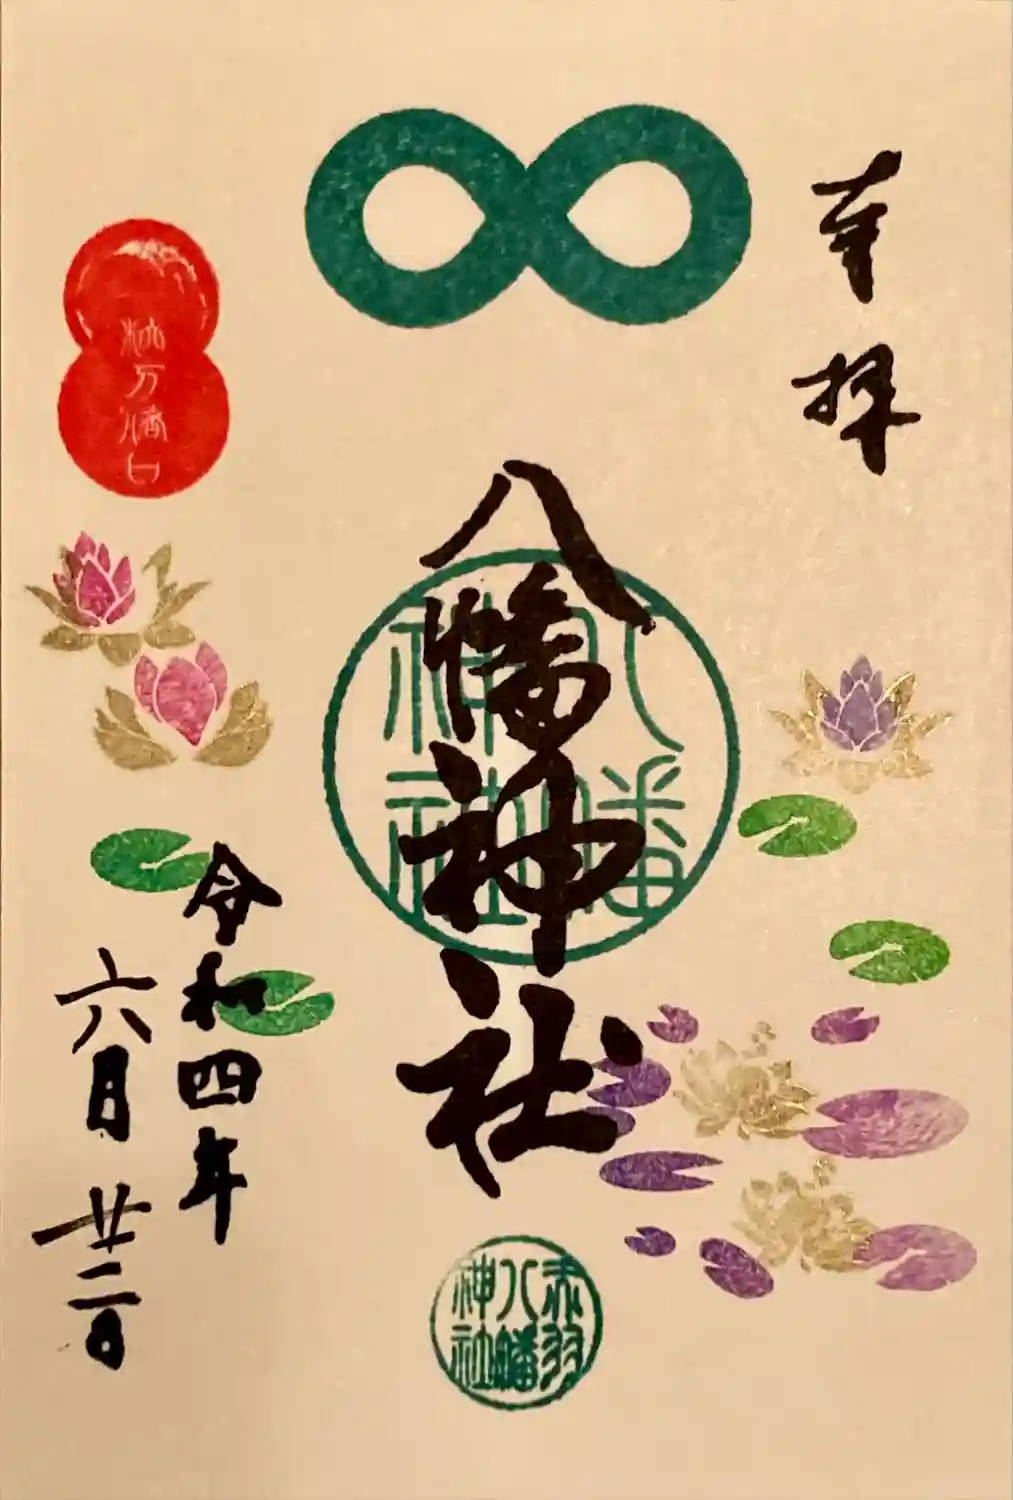 奉拝
八幡神社
八幡
神社
赤羽
八幡
神社
令和四年
六月廿二日